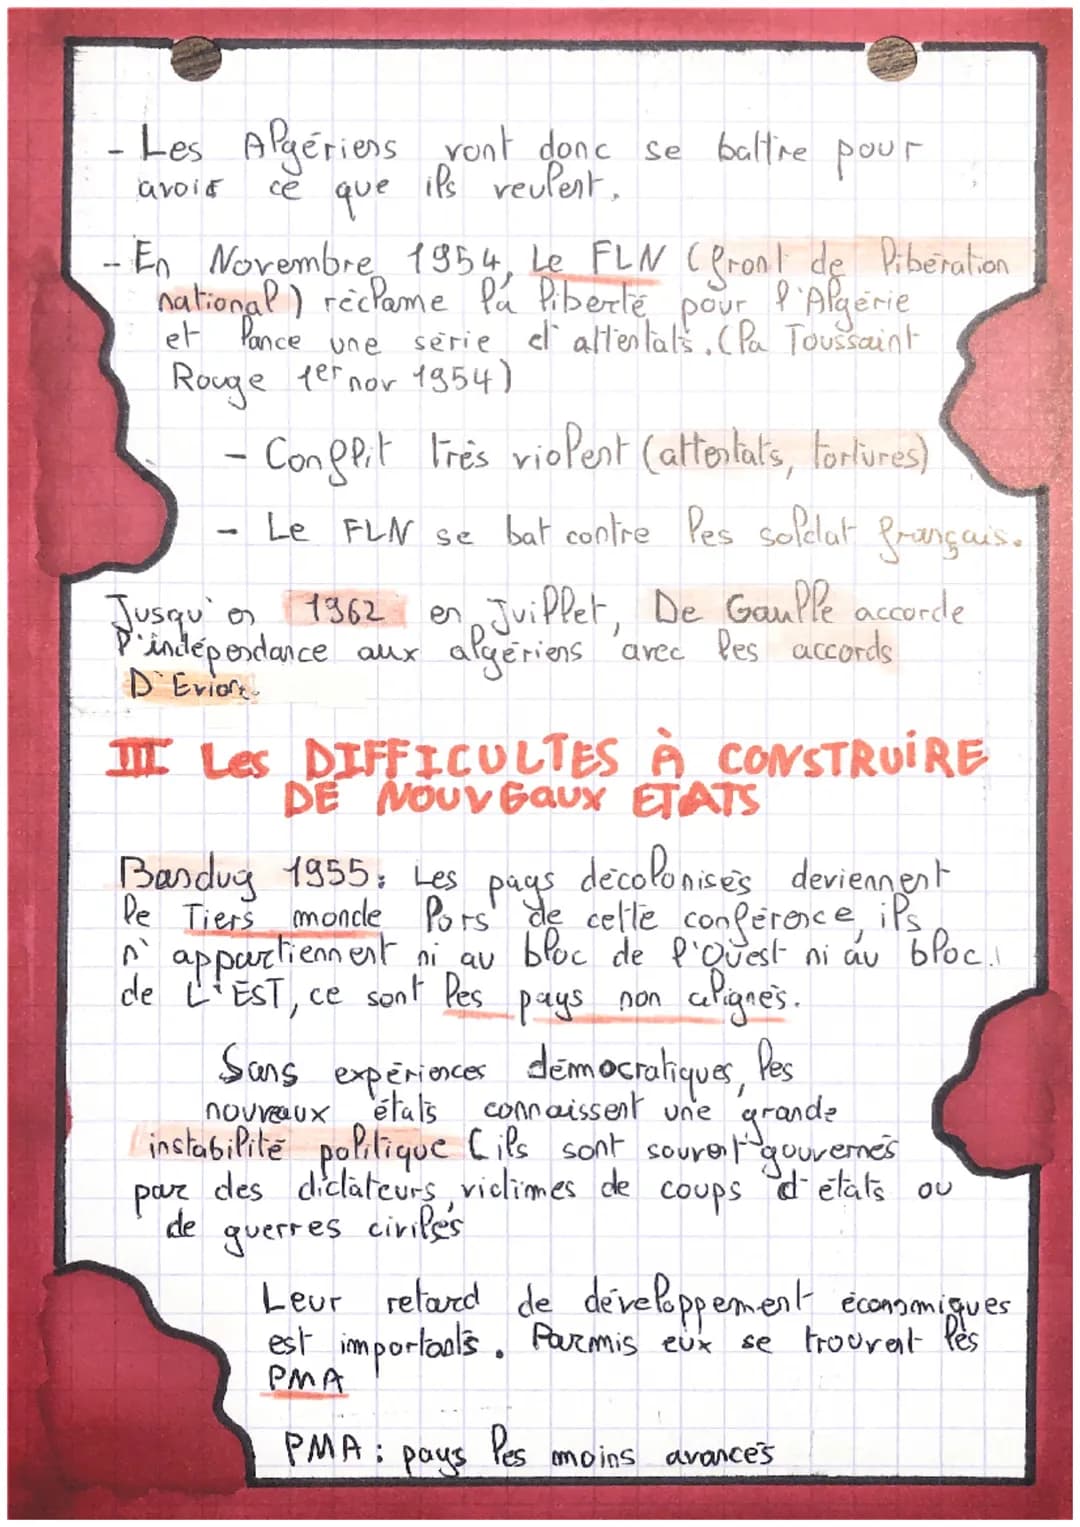 - Les Algériens vont donc se battre pour
avoir ce que ils veulent.
- En Novembre 1954, Le FLN (front de libération
national) réclame la liberté pour l'Algérie
et lance une série d'attentats. (la Toussaint
Rouge 1er nov 1954)
- Conflit très violent (attentats, tortures)
- Le FLN se bat contre les soldat français.
Jusqu'en 1962 en Juillet, De Gaulle accorde
l'indépendance aux algériens avec les accords
D'Evian.
III Les DIFFICULTES À CONSTRUIRE
DE NOUVEAUX ETATS
Bandug 1955: Les pays décolonisés deviennent
le Tiers monde lors de cette conférence, ils
n'appartiennent ni au bloc de l'Ouest ni au bloc
de L'EST, ce sont les pays non alignés.
Sans expériences démocratiques, les
nouveaux états connaissent une grande
instabilité politique (ils sont souvent gouvernés
par des dictateurs, victimes de coups d'états ou
de guerres civiles
Leur retard de développement économiques
est importants. Parmis eux se trouvent les
PMA
PMA : pays les moins avancés